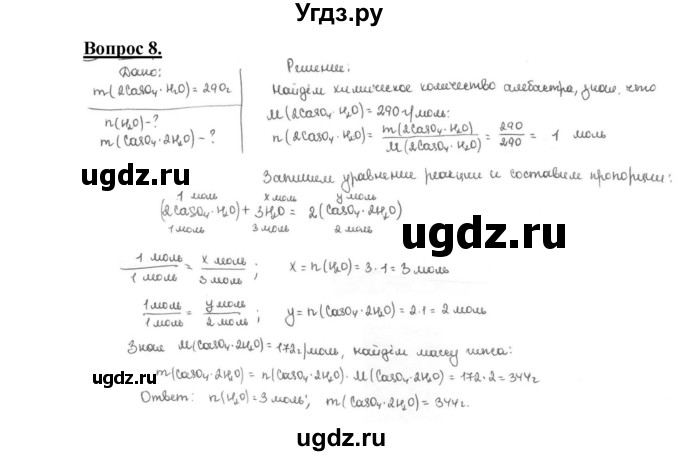 Угдз.ру
Вопрос 8.
Дано:
m(2CaSO₄·H₂O)=290г
n(H₂O)-?
m(CaSO₄·2H₂O)-?
Решение:
Найдём химическое количество алебастра, зная, что
M(2CaSO₄·H₂O)=290г/моль:
n(2CaSO₄·H₂O)= m(2CaSO₄·H₂O)/M(2CaSO₄·H₂O) = 290/290 = 1 моль
Запишем уравнение реакции и составим пропорции:
1 моль x моль y моль
(2CaSO₄·H₂O)+3H₂O = 2(CaSO₄·2H₂O)
1 моль 3 моль 2 моль
1 моль/1 моль = x моль/3 моль; x=n(H₂O)=3·1=3 моль
1 моль/1 моль = y моль/2 моль; y=n(CaSO₄·2H₂O)=2·1=2 моль
Зная M(CaSO₄·2H₂O)=172г/моль, найдём массу гипса:
m(CaSO₄·2H₂O)=n(CaSO₄·2H₂O)·M(CaSO₄·2H₂O)=172·2=344г
Ответ: n(H₂O)=3 моль; m(CaSO₄·2H₂O)=344г.
ugdz.ru
ugdz.ru
ugdz.ru
ugdz.ru
ugdz.ru